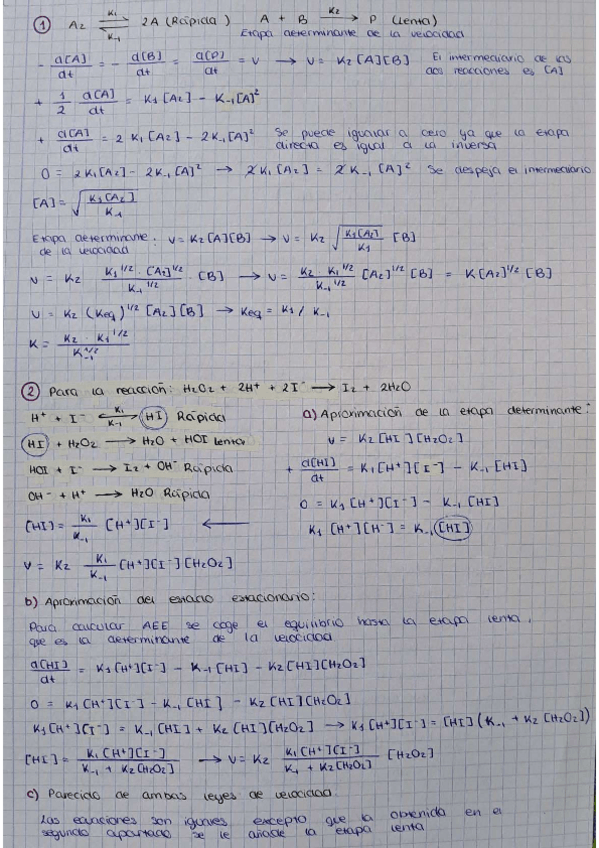 ① A₂ ⇌ 2A (Rápida) K₁ K₋₁ A + B →K₂ P (Lenta)
Etapa determinante de la velocidad
- d[A]/dt = - d[B]/dt = d[P]/dt = v → v = K₂ [A][B] El intermediario de las dos reacciones es [A]
+ 1/2 d[A]/dt = K₁[A₂] - K₋₁[A]²
+ d[A]/dt = 2 K₁[A₂] - 2K₋₁[A]² Se puede igualar a cero ya que la etapa directa es igual a la inversa
0 = 2K₁[A₂] - 2K₋₁[A]² → 2K₁[A₂] = 2K₋₁[A]² Se despeja el intermediario
[A] = √(K₁[A₂]/K₋₁)
Etapa determinante de la velocidad: v = K₂[A][B] → v = K₂ √(K₁[A₂]/K₁) [B]
v = K₂ K₁^1/2 · [A₂]^1/2 / K₋₁^1/2 · [B] → v = K₂ · K₁^1/2 / K₋₁^1/2 [A₂]^1/2 [B] = K[A₂]^1/2 [B]
v = K₂ (Keq)^1/2 [A₂][B] → Keq = K₁/K₋₁
K = K₂ · K₁^1/2 / K₋₁^1/2
② Para la reacción: H₂O₂ + 2H⁺ + 2I⁻ → I₂ + 2H₂O
H⁺ + I⁻ ⇌ HI Rápida K₁ K₋₁
HI + H₂O₂ → H₂O + HOI Lenta
HOI + I⁻ → I₂ + OH⁻ Rápida
OH⁻ + H⁺ → H₂O Rápida
[HI] = K₁/K₋₁ [H⁺][I⁻] ←
v = K₂ K₁/K₋₁ [H⁺][I⁻][H₂O₂]
a) Aproximación de la etapa determinante:
v = K₂[HI][H₂O₂]
+ d[HI]/dt = K₁[H⁺][I⁻] - K₋₁[HI]
0 = K₁[H⁺][I⁻] - K₋₁[HI]
K₁[H⁺][H⁻] = K₋₁[HI]
b) Aproximación del estado estacionario:
Para calcular AEE se coge el equilibrio hasta la etapa lenta,
que es la determinante de la velocidad
d[HI]/dt = K₁[H⁺][I⁻] - K₋₁[HI] - K₂[HI][H₂O₂]
0 = K₁[H⁺][I⁻] - K₋₁[HI] - K₂[HI][H₂O₂]
K₁[H⁺][I⁻] = K₋₁[HI] + K₂[HI][H₂O₂] → K₁[H⁺][I⁻] = [HI](K₋₁ + K₂[H₂O₂])
[HI] = K₁[H⁺][I⁻] / K₋₁ + K₂[H₂O₂] → v = K₂ K₁[H⁺][I⁻] / K₋₁ + K₂[H₂O₂] [H₂O₂]
c) Parecido de ambas leyes de velocidad.
Las ecuaciones son iguales excepto que la obtenida en el
segundo apartado se le añade la etapa lenta